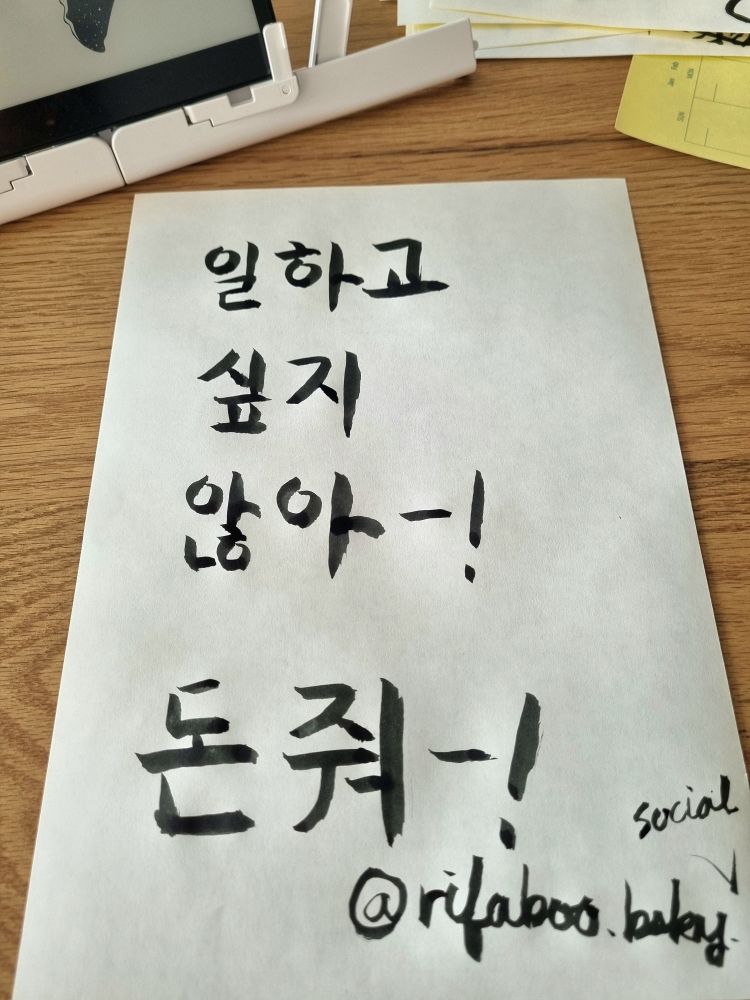 일하고
싶지
않아-!
돈줘-!
social
@rifaboo.bsky.